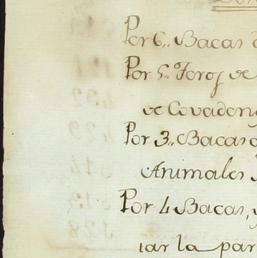 Por 6,, Bacas
Por 5,, Toros de
de Covadon
Por 3,, Bacas
Animales
Por 4 Bacas, y
iar la par